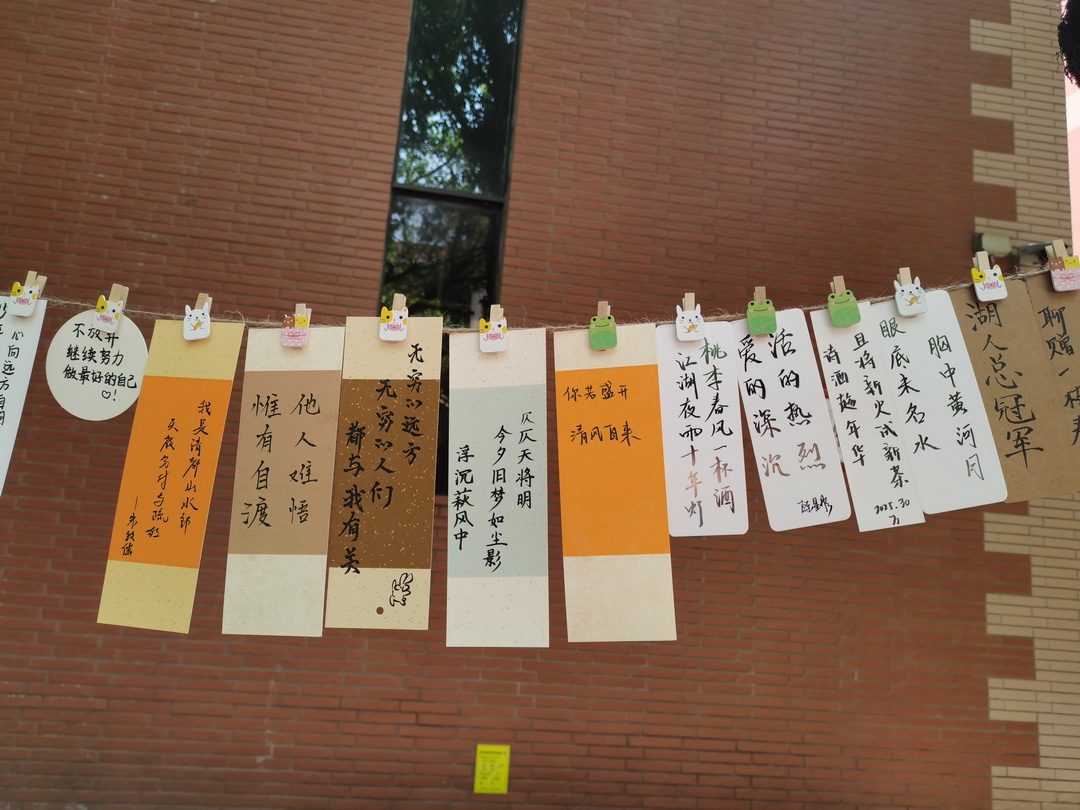 心向远方自
不放开
继续努力
做最好的自己
♡!
我是清都山水郎
天教分付与疏狂
——朱敦儒
他人难悟
惟有自渡
无穷的远方
无穷的人们
都与我有关
仄仄天将明
今夕旧梦如尘影
浮沉萩风中
你若盛开
清风自来
桃李春风一杯酒
江湖夜雨十年灯
活的热烈
爱的深沉
且将新火试新茶
诗酒趁年华
2025.30
胸中黄河月
眼底未名水
湖人总冠军
聊赠一枝